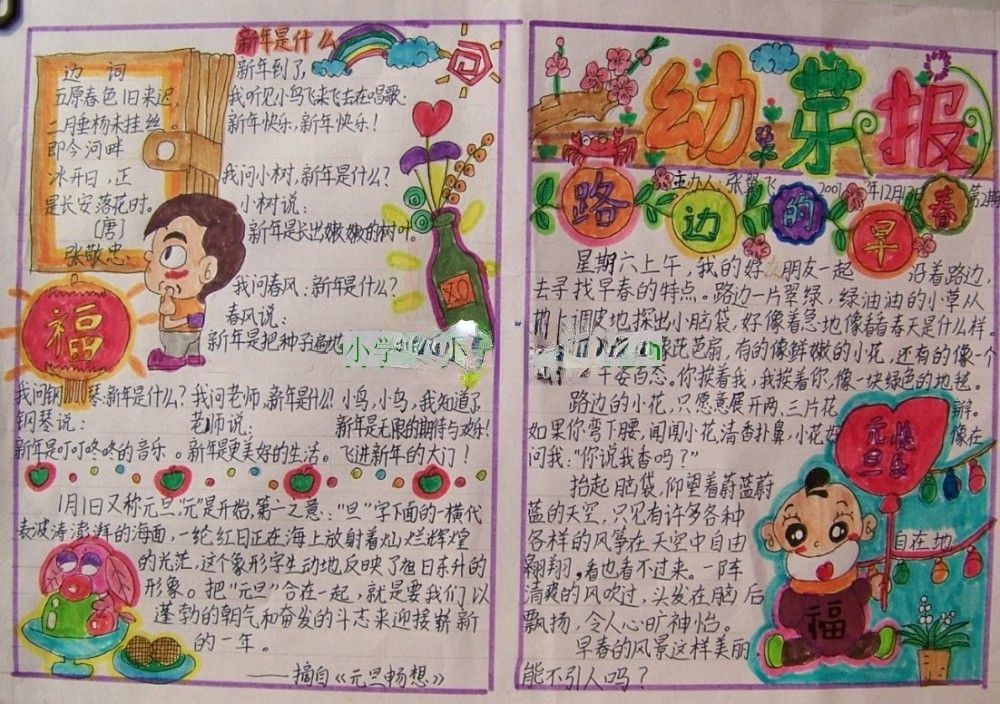 新年是什么
边 词
五原春色旧来迟,
二月垂杨未挂丝。
即今河畔
冰开日,正
是长安落花时。
〔唐〕
张敬忠
福
新年到了,
我听见小鸟飞来飞去在唱歌:
新年快乐,新年快乐!
我问小树,新年是什么?
小树说:
新年是长出嫩嫩的树叶。
我问春风:新年是什么?
春风说:
新年是把种子遍地
XO
我问钢琴:新年是什么?
钢琴说:
新年是叮叮咚咚的音乐。
我问老师,新年是什么?
老师说:
新年是更美好的生活。
小鸟,小鸟,我知道了
新年是无限的期待与欢乐!
飞进新年的大门!
1月1日又称元旦,"元"是开始,第一之意;"旦"字下面的一横代
表波涛澎湃的海面,一纶红日正在海上放射着灿烂辉煌
的光茫,这个象形字生动地反映了旭日东升的
形象。把"元旦"合在一起,就是要我们以
蓬勃的朝气和奋发的斗志来迎接崭新
的一年。
——摘自《元旦畅想》
幼芽报
主办人:张翼飞
路边的早春
星期六上午,我的好朋友一起沿着路边,
去寻找早春的特点。路边一片翠绿,绿油油的小草从
地上调皮地探出小脑袋,好像着急地像看看春天是什么样。
芭扇,有的像鲜嫩的小花,还有的像一个
千姿百态。你挨着我,我挨着你,像一块绿色的地毯。
路边的小花,只愿意展开两、三片花瓣。
如果你弯下腰,闻闻小花,清香扑鼻,小花好像在
问我:"你说我香吗?"
抬起脑袋,仰望着蔚蓝蔚
蓝的天空,只见有许多各种
各样的风筝在天空中自由自在地
翱翔,看也看不过来。一阵
清爽的风吹过,头发在脑后
飘扬,令人心旷神怡。
早春的风景这样美丽
能不引人吗?
元旦快乐
福